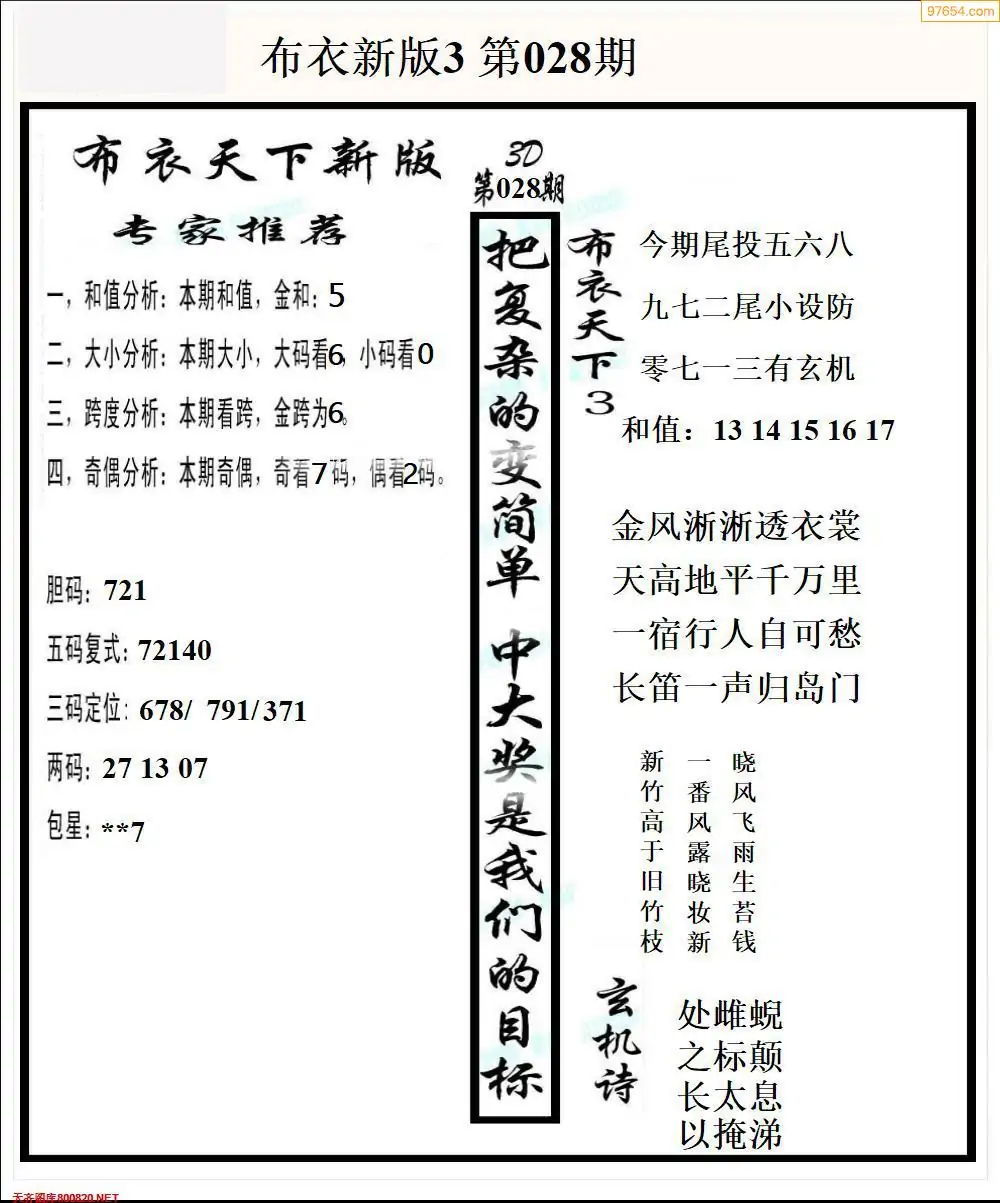 97654.com
布衣新版3 第028期
布衣天下新版
专家推荐
一，和值分析：本期和值，金和：5
二，大小分析：本期大小，大码看6，小码看0
三，跨度分析：本期看跨，金跨为6。
四，奇偶分析：本期奇偶，奇看7码，偶看2码。
胆码：721
五码复式：72140
三码定位：678/ 791/371
两码：27 13 07
包星：**7
3D
第028期
把复杂的变简单 中大奖是我们的目标
布衣天下3
今期尾投五六八
九七二尾小设防
零七一三有玄机
和值：13 14 15 16 17
金风淅淅透衣裳
天高地平千万里
一宿行人自可愁
长笛一声归岛门
晓风飞雨生苔钱
一番风露晓妆新
新竹高于旧竹枝
玄机诗
处雌蜺
之标颠
长太息
以掩涕
天齐图库800820.NET